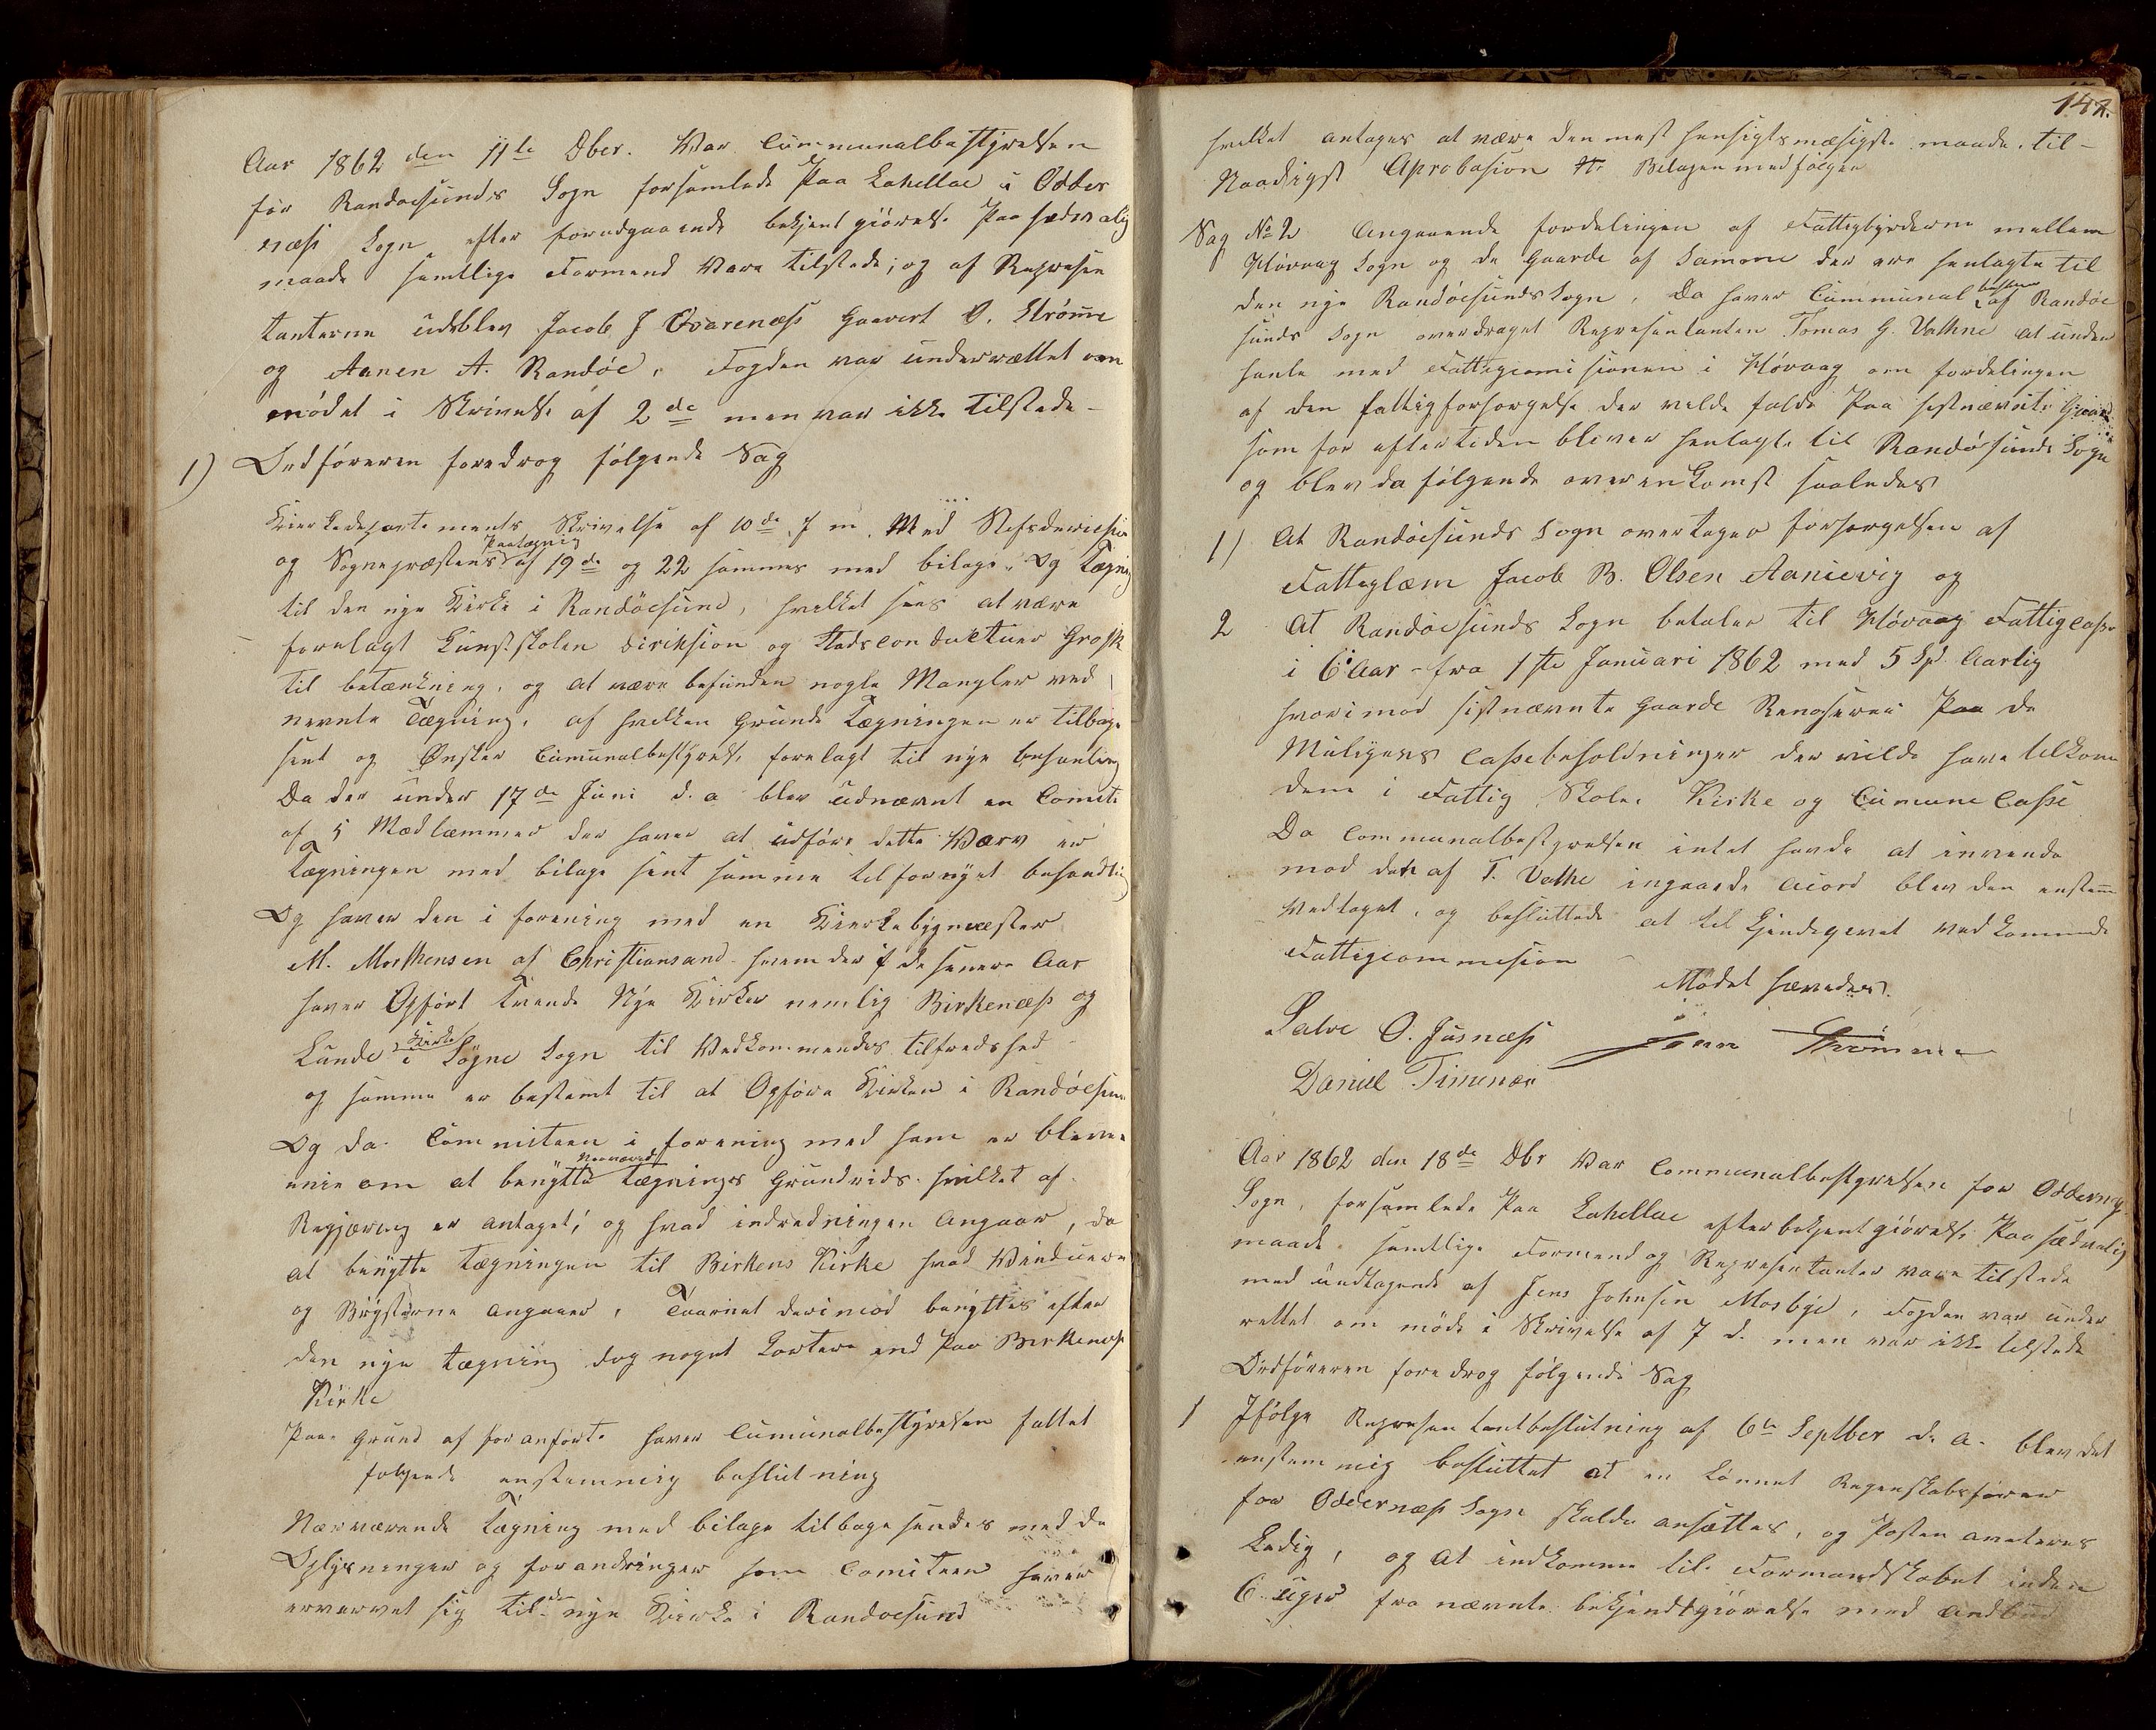 Aar 1862 den 11te Dber. Var Cummunalbestyrelsen
for Randøesunds Sogn forsamlede Paa Lahellae i Odder
næss Sogn efter forudgaaende bekjentgiörelse Paa sædvalig
maade samtlige Formend Vare tilstede; og af Represen
tanterne udeblev Jacob J Qvarenæss Gaavert O. Strømme
og Aanen A. Randøe, Fogden var underrættet om
mödet i Skrivelse af 2de men var ikke tilstede -
1) Ordföreren foredrog fölgende Sag
Kierkedepartements Skrivelse af 10de f m. Med Stifsdericsion
og Sognepræstens Paategning af 19de og 22 sammes med bilage. og Tegning
til den nye Kirke i Randöesund, hvilket sees at være
forelagt Kunstskolen Diriksion og Stadsconducteuer Grosk
til betænkning, og at være befunden nogle Mangler ved
nevnte Tægning, af hvilken grunde Tægningen er tilbage
sent og Ønsker Cumunalbestyrels. forelagt til nye behanling
Da der under 17de Juni d. a blev udnævnt en Comite
af 5 Medlæmmer der haver at udföre dette Værv er
Tægningen med bilage sent samme til fornyet behandling
Og haver den i forening med en Kierkebygmæster
M. Morthensen af Christiansand hvem der i de senere Aar
haver Opført tvende Nye Kirker nemlig Birkenæss og
Lunde Kirke i Søgne Sogn til Vedkommendes tilfredshed
og samme er bestemt til at Opföre Kirken i Randöesun
Og da Commiteen i forening med ham er bleven
enie om at benytte Nerværende Tægnings Grundrids hvilket af
Regjæring er antaget; og hvad indredningen Angaar, da
at benytte Tægningen til Birkens Kirke hvad Vinduerne
og angaaer, Taarnet derimod benyttes efter
den nye tægning dog noget Kortere end Paa Birkenæss
Kirke
Paa Grund af foranförte haver Cumunalbestyrelsen fattet
følgende enstemmig beslutning
Nærværende Tægning med bilage tilbagesendes med de
Oplysninger og forandringer som Comiteen haver
ervervet sig til den nye Kierke i Randoesund
142.
hvilket antages at være den mest hensigtsmæsigste maade. til -
Naadigst Aprobasion Bilagen medfölger
Sag No 2 Angaaende fordelingen af Fattigbyrderne mellem
Høvaag Sogn og de gaarde af samme der ere henlagte til
den nye Randöesunds Sogn, Da haver Cummunal besty af Randöe
sunds Sogn overdraget Represantanten Tomas G. Vathne at under
hanle med Fattigcomisionen i Høvaag om fordelingen
af den fattigforsorgelse der vilde falde Paa sistnævnte Gaarde
som for eftertiden bliver henlagte til Randösunds Sogn
og blev da følgende overenkomst saaledes
1) At Randöesunds Sogn overtager forsorgelsen af
Fattiglæm Jacob B. Olsen Aanievig og
2 at Randöesunds Sogn betaler til Høvaag Fattigcasse
i 6 Aar - fra 1ste Januari 1862 med 5 Spd. Aarlig
hvorimod sistnævnte Gaarde Renoserer Paa de
Muligens Cassebeholdninger der vilde have tilkom
dem i Fattig Skole, Kirke og Cumune Casse
Da Communalbestyrelsen intet havde at invende
mod den af T. Vathe ingaaede Acord blev den enstem
Vedtaget, og besluttede at tilkjendegivet vedkommende
Fattigcommesion -
Mödet hævedes.
Salve O. Jusnæss Strömme
Daniel Timenæs
Aar 1862 den 18de Dbr Var Communalbestyrelsen for Oddernæs
Sogn, forsamlede Paa Lahellae efter bekjentgiörelse Paa sædvalig
maade samtlige Formend og Representanter vare tilstede
med undtagende af Jens Johnsen Mosbye, Fogden var under
rettet om möde i Skrivelse af 7 d. men var ikke tilstede
Ordföreren foredrog følgende Sag
1 Ifölge Represantantbeslutning af 6te Septber d. a. blev det
enstemmig besluttet at en Lönnet Regenskabsförer
for Oddernæss Sogn skulde ansættes, og Posten averteres
Ledig, og at indkomme til Formandskabet inden
6 uger fra nævnte bekjendtgiörelse med andbud